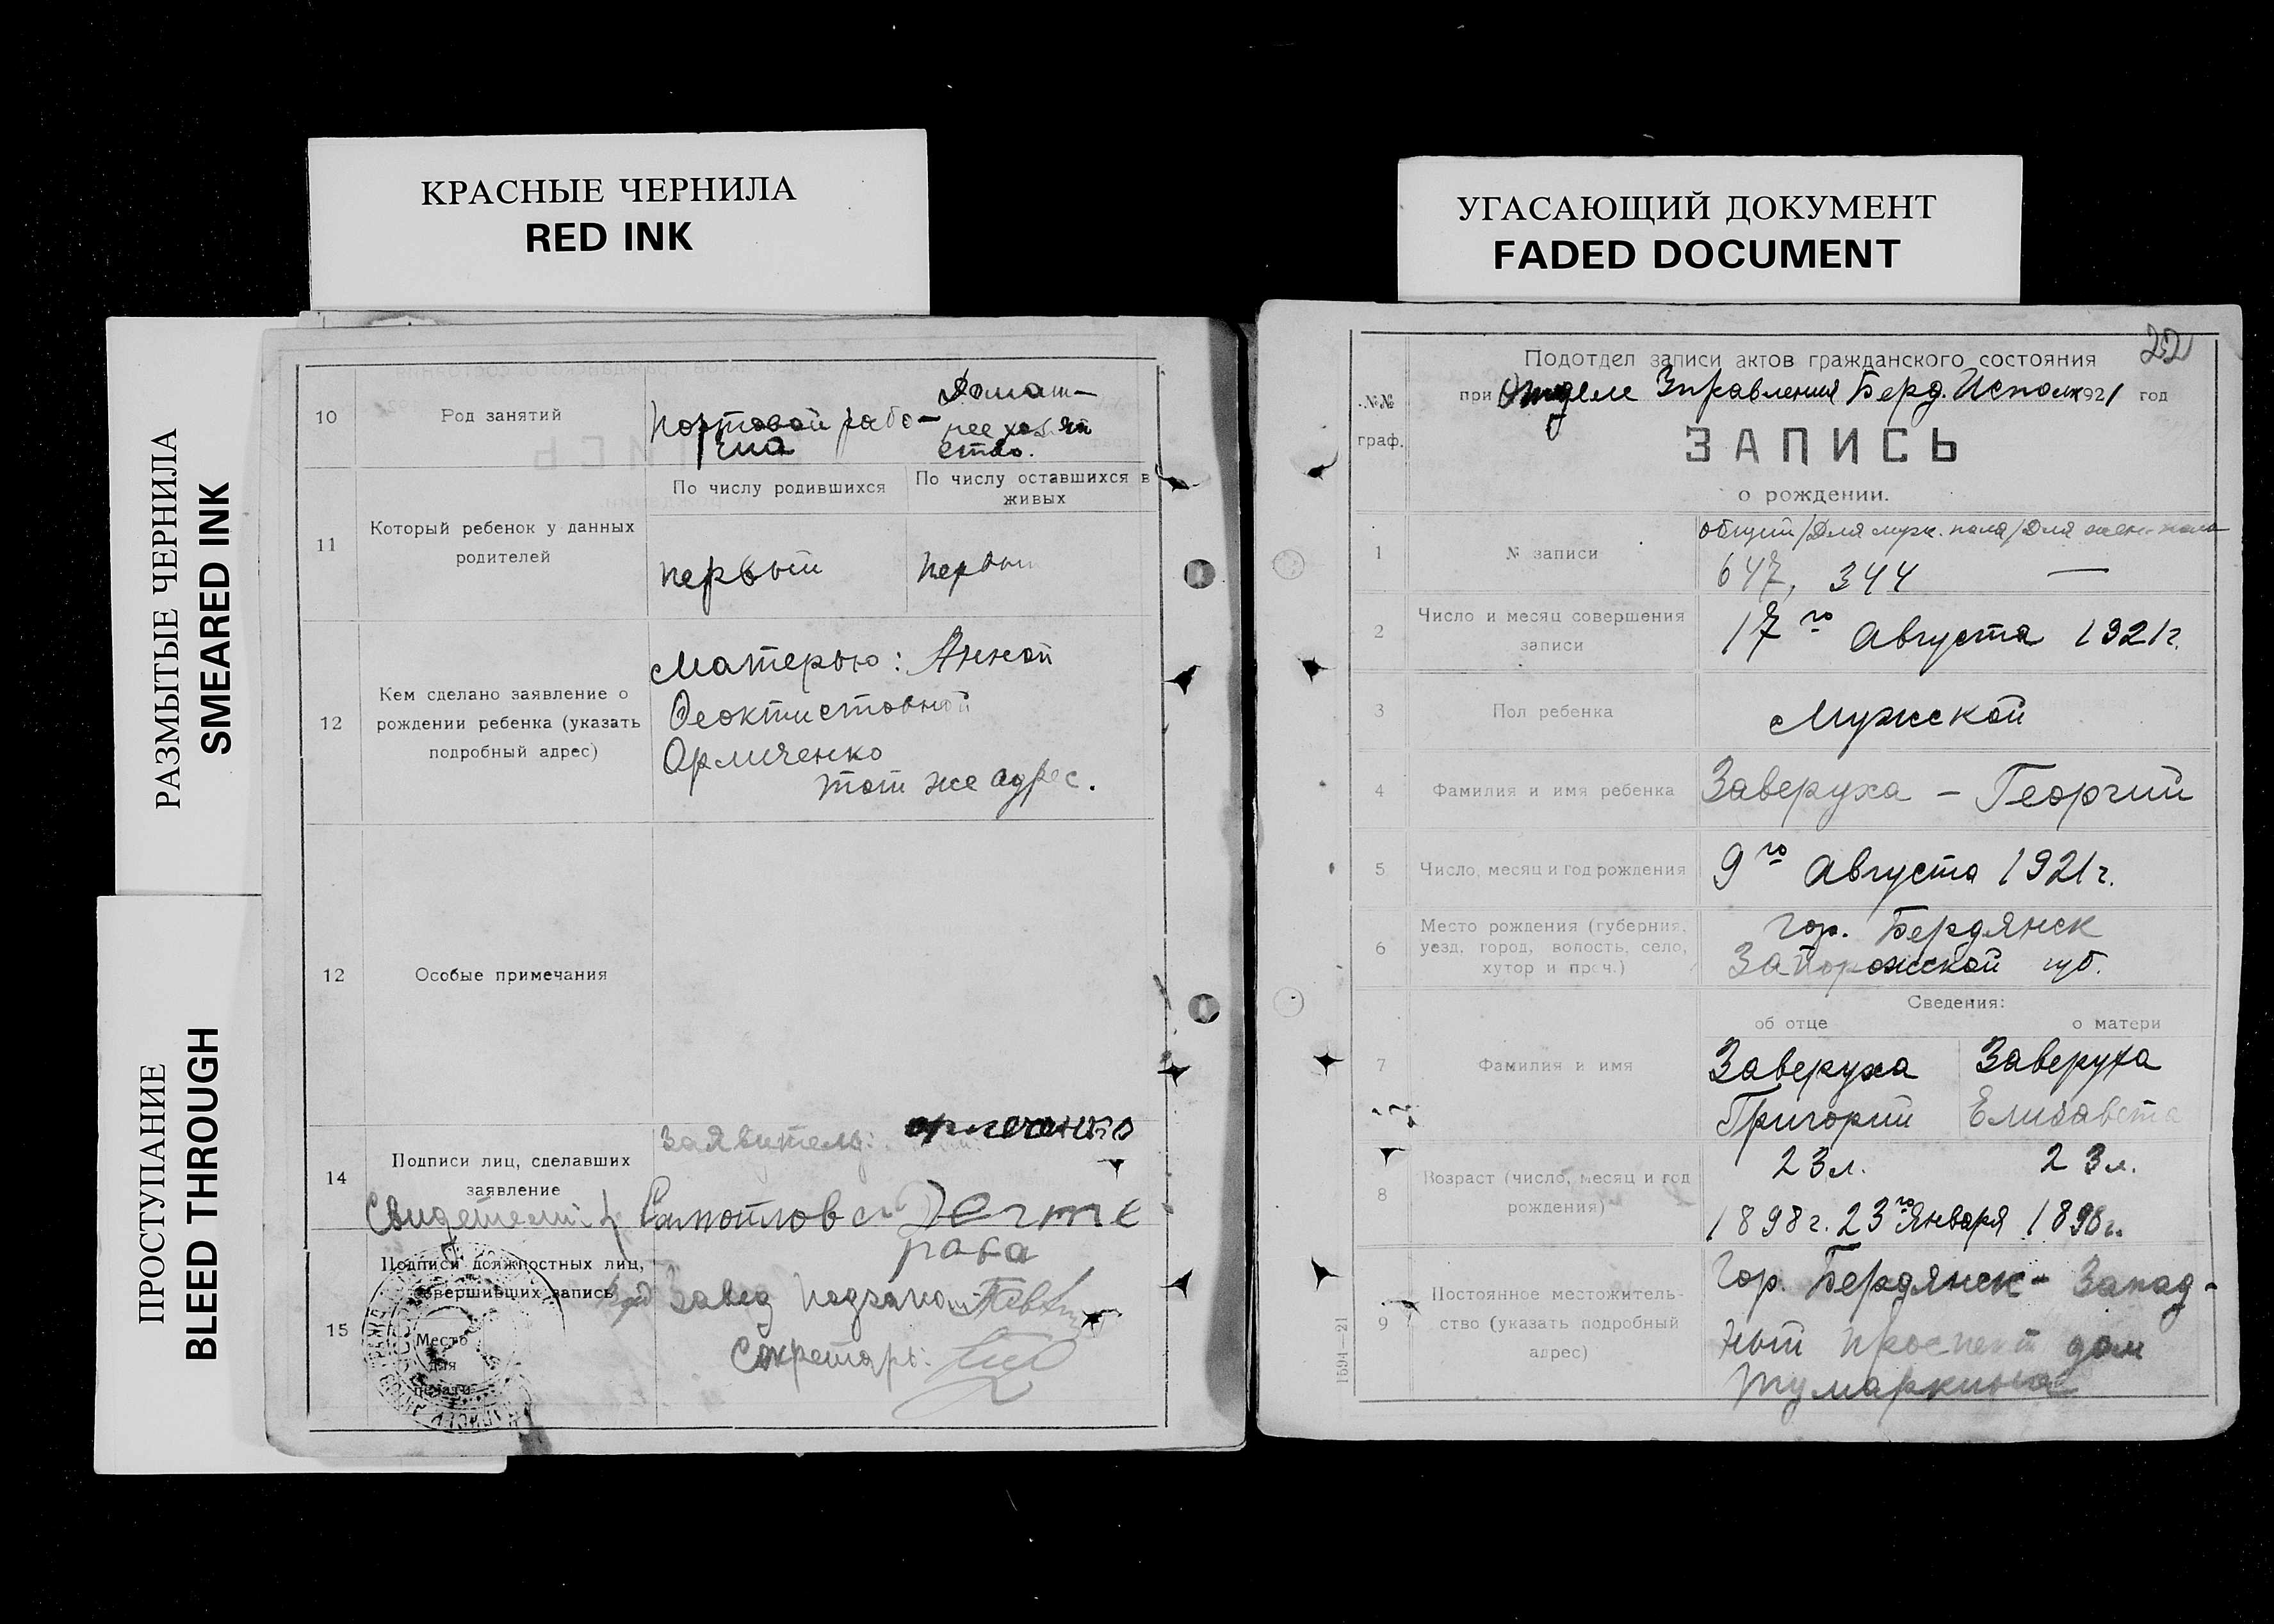 КРАСНЫЕ ЧЕРНИЛА
RED INK
УГАСАЮЩИЙ ДОКУМЕНТ
FADED DOCUMENT
РАЗМЫТЫЕ ЧЕРНИЛА
SMEARED INK
ПРОСТУПАНИЕ
BLEED THROUGH
10
Род занятий
Портовой рабо-
Домаш-
нее хозяй
ство.
11
Который ребенок у данных
родителей
По числу родившихся
По числу оставшихся в
живых
первый
первый
12
Кем сделано заявление о
рождении ребенка (указать
подробный адрес)
Матерью: Анной
Феоктистовной
Орличенко
тот же адрес.
12
Особые примечания
14
Подписи лиц, сделавших
заявление
заявитель:
Свидетели:
15
Подписи должностных лиц,
совершивших запись
Место
для
печати
Завед
Секретарь:
22
№№
граф.
Подотдел записи актов гражданского состояния
при Отделе Управления Берд. Исполк 1921 год
ЗАПИСЬ
о рождении.
1
№ записи
общий/Для муж. пола/Для жен. пола
647, 344 —
2
Число и месяц совершения
записи
17го Августа 1921г.
3
Пол ребенка
Мужской
4
Фамилия и имя ребенка
Заверуха - Георгий
5
Число, месяц и год рождения
9го Августа 1921г.
6
Место рождения (губерния,
уезд, город, волость, село,
хутор и проч.)
гор. Бердянск
Запорожской губ.
Сведения:
об отце
о матери
7
Фамилия и имя
Заверуха
Григорий
Заверуха
Елизавета
8
Возраст (число, месяц и год
рождения)
23л.
23л.
1898г. 23го Января 1898г.
9
Постоянное местожитель-
ство (указать подробный
адрес)
Гор. Бердянск - Запад-
ный проспект дом
Тумаркина
1594—21